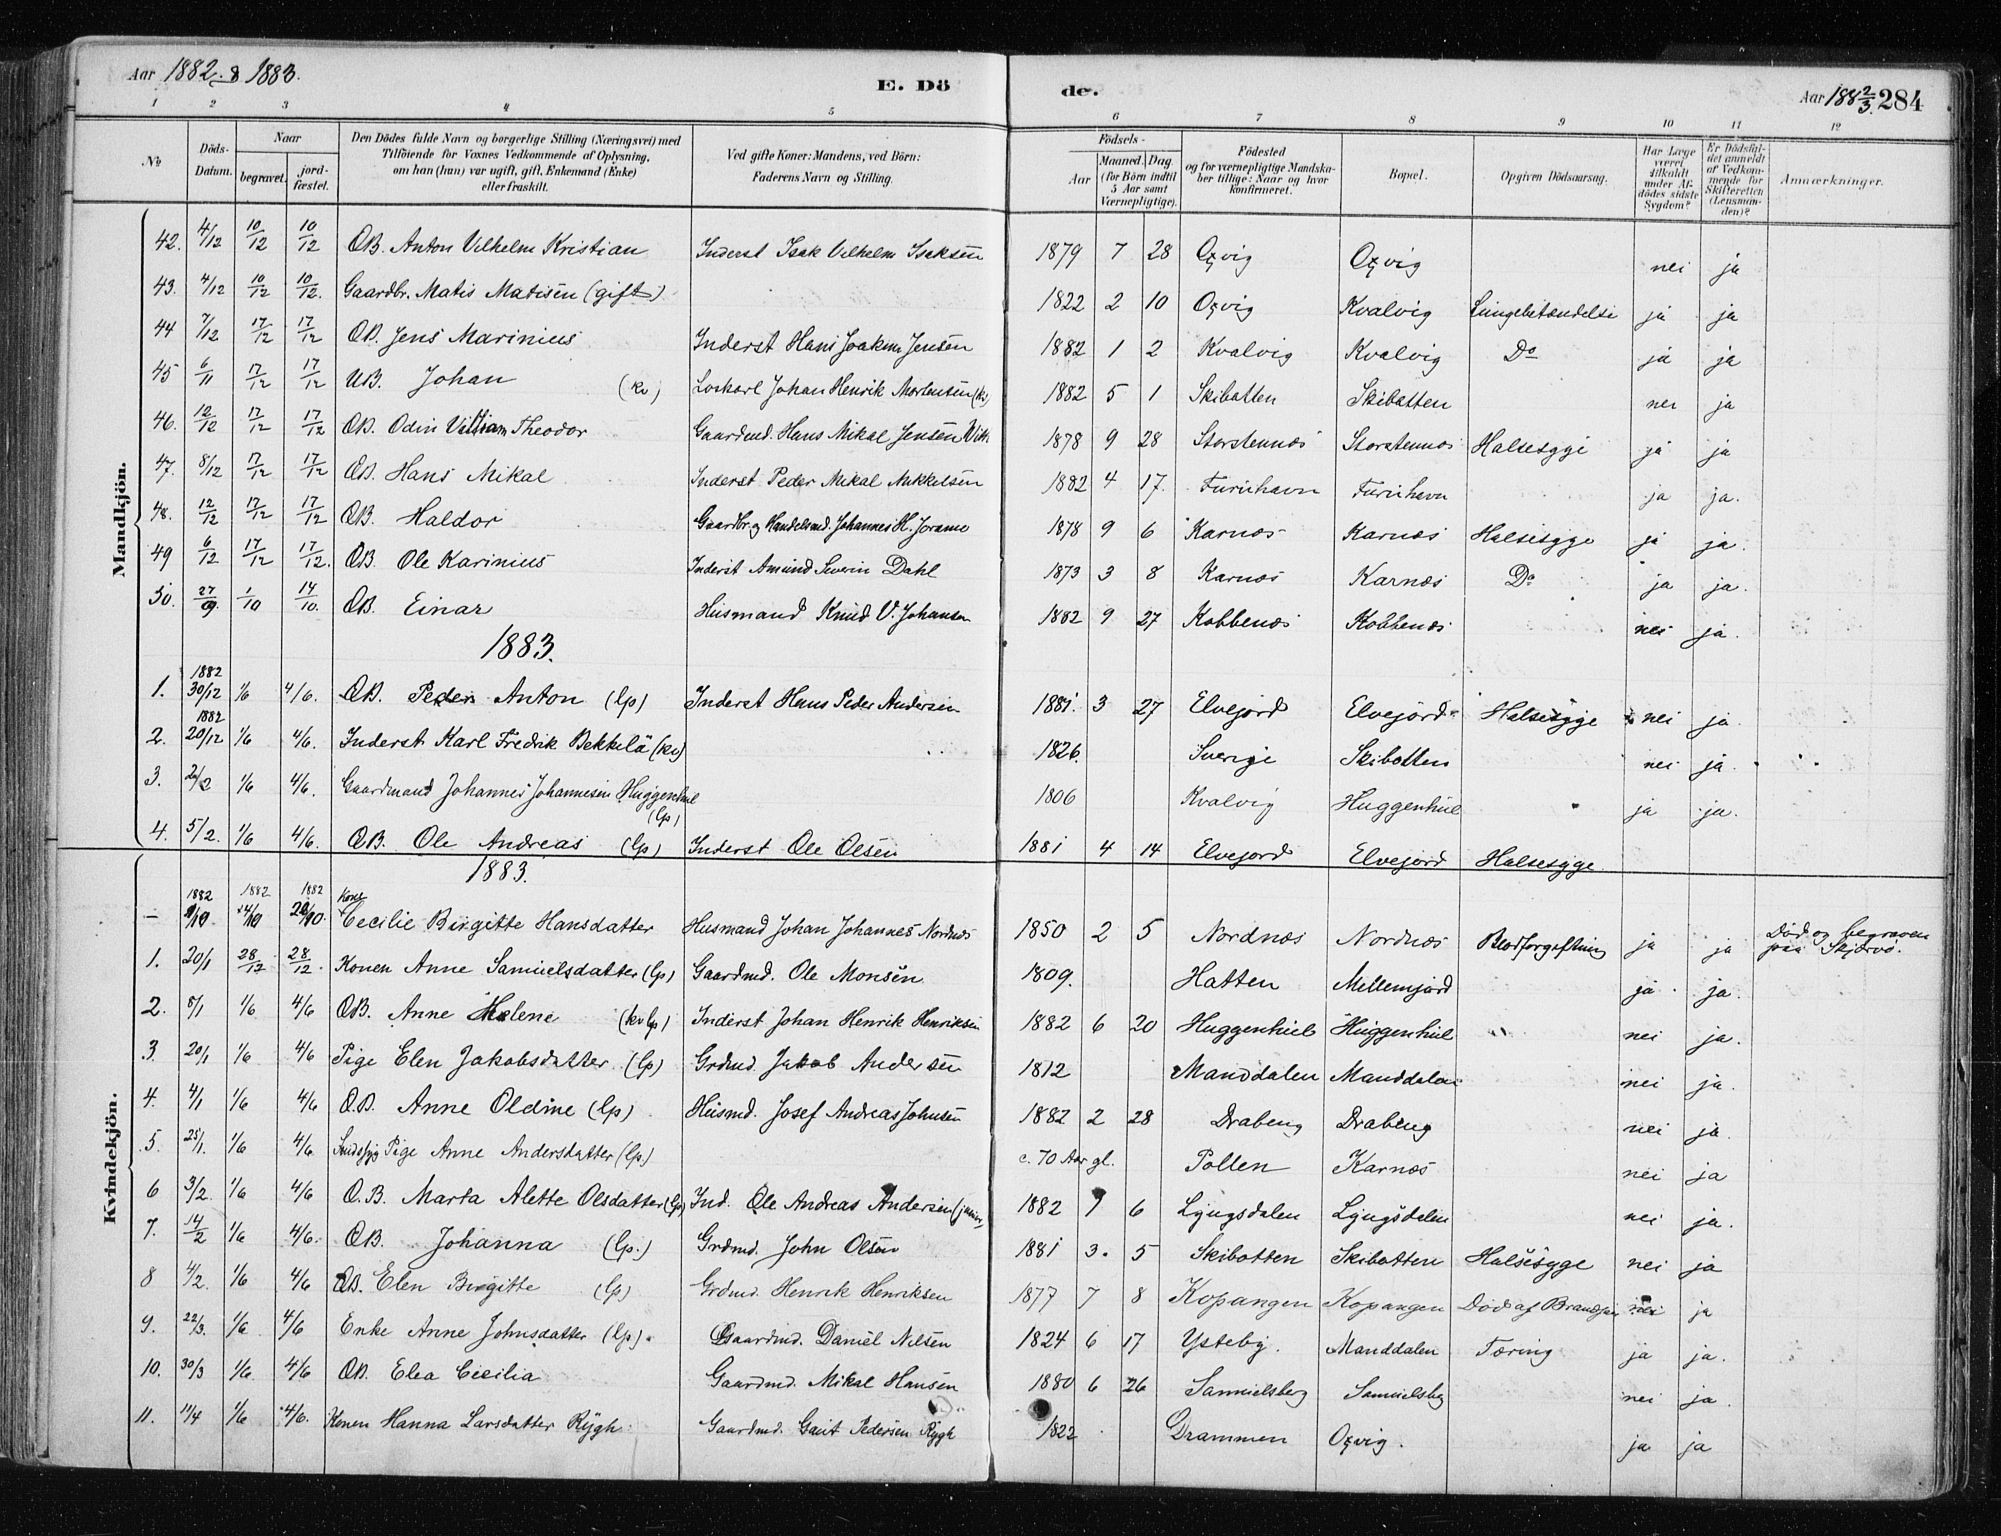 Aar 1882 & 1883.
E. Döde.
Aar 1882/3. 284
1 2 3 4 5 6 7 8 9 10 11 12
No
Döds-Datum.
Naar
begravet.
jord-fæstet.
Den Dödes fulde Navn og borgerlige Stilling (Næringsvei) med Tilföiende for Voxnes Vedkommende af Oplysning, om han (hun) var ugift, gift, Enkemand (Enke) eller fraskilt.
Ved gifte Koner: Mandens, ved Börn: Faderens Navn og Stilling.
Födsels-
Aar
Maaned. Dag.
(for Börn indtil 5 Aar samt Værnepligtige).
Födested og for værnepligtige Mandskaber tillige: Naar og hvor konfirmeret.
Bopæl.
Opgiven Dödsaarsag.
Har Læge været tilkaldt under Afdödes sidste Sygdom?
Er Dödsfaldet anmeldt af Vedkommende for Skifteretten (Lensmanden)?
Anmærkninger.
Mandkjön.
42. 4/12 10/12 10/12 ÆB. Anton Vilhelm Kristian Inderst Isak Vilhelm Isaksen 1879 7 28 Oxvig Oxvig nei ja
43. 4/12 10/12 10/12. Gaardbr. Matis Matisen (gift) 1822 2 10 Oxvig Kvalvig Lungebetændelse ja ja
44 7/12 17/12 17/12. ÆB. Jens Marinius Inderst Hans Joakim Jensen 1882 1 2 Kvalvig Kvalvig Do ja ja
45 6/11 17/12 17/12 UB. Johan (kv) Løskarl Johan Henrik Mortensen (kv) 1882 5 1 Skibotten Skibotten nei ja
46. 12/12 17/12 17/12 ÆB. Odin Villiam Theodor Gaardmd. Hans Mikal Jensen 1878 9 28 Storstennæs Storstennæs Halsesyge ja ja
47. 8/12 17/12 17/12 ÆB. Hans Mikal Inderst Peder Mikal Mikkelsen 1882 4 17. Furuhavn Furuhavn ja ja.
48. 12/12 17/12 17/12 ÆB. Haldor Gaardbr. og Handelsmd. Johannes H. 1878 9 6 Karnæs Karnæs Halsesyge ja ja.
49 6/12 17/12 17/12. ÆB. Ole Karinius Inderst Amund Severin Dahl 1873 3 8 Karnæs Karnæs Do ja ja.
50. 27/9. 1/10 14/10. ÆB. Einar Husmand Knud V. Johansen 1882 9 27 Kobbenæs Kobbenæs nei ja.
1883.
1. 1882 30/12 1/6 4/6. ÆB. Peder Anton (lp) Inderst Hans Peder Andersen 1881. 3 27 Elvejord Elvejord Halsesyge nei ja.
2. 1882 20/12 1/6 4/6. Inderst Karl Fredrik Bekkelä (kv) 1826. Sverige Skibotten nei ja.
3. 1/6 4/6. Gaardmand Johannes Johannesen Huggenhul (lp) 1806 Kvalvig Huggenhul ja ja.
4. 5/2. 1/6 4/6. ÆB. Ole Andreas (lp) Inderst Ole Olsen 1881 4 14 Elvejord Elvejord Halsesyge
1883.
Kvindekjön.
– 1882 1882 1882 Kone Cecilie Birgitte Hansdatter Husmand Johan Johannes Nordnæs 1850 2 5 Nordnæs Nordnæs Blodforgiftning ja ja Død og begraven paa Skjervø.
1. 20/1 28/12 28/12. Konen Anne Samuelsdatter (lp) Gaardmd. Ole Monsen 1809. Hatten Mellemjord ja ja.
2. 8/1 1/6 4/6 ÆB. Anne Helene (kv lp) Inderst Johan Henrik Henriksen 1882 6 20 Huggenhul Huggenhul nei ja.
3. 20/1 1/6 4/6 Pige Elen Jakobsdatter (lp) Grdmd. Jakob Andersen 1812 Manddalen Manddalen nei ja.
4. 4/1 1/6 4/6 Æ.B. Anne Oldine (lp) Husmd. Josef Andreas Johnsen 1882 2 28 Drabeng Drabeng nei ja.
5. 25/1. 1/6 4/6. Sindssyg Pige Anne Andersdatter (lp.) c. 70 Aar gl. Pollen Karnæs nei ja
6 3/2. 1/6 4/6 Æ.B. Marta Alette Olsdatter (lp) Ind. Ole Andreas Andersen (junior) 1882 7 6 Lyngsdalen Lyngsdalen nei ja.
7. 14/2 1/6 4/6. ÆB. Johanna (lp.) Grdmd. John Olsen 1881 3. 5 Skibotten Skibotten Halsesyge nei ja
8 4/2. 1/6 4/6 ÆB. Elen Birgitte (lp) Grdmd. Henrik Henriksen 1877 7 8 Kopangen Kopangen Død af nei ja
9. 22/3. 1/6 4/6 Enke Anne Johnsdatter (lp). Gaardmd. Daniel Nilsen 1824 6 17 Ysteby. Manddalen Tæring ja ja.
10. 30/3 1/6. 4/6 ÆB. Elea Cecilia Gaardmd. Mikal Hansen 1880 6 26 Samuelsberg Samuelsbg nei ja.
11. 11/4 1/6 4/6. Konen Hanna Larsdatter Rÿgh Gaardmd. Gaut Pedersen Rygh 1822 Drammen Oxvig. ja ja